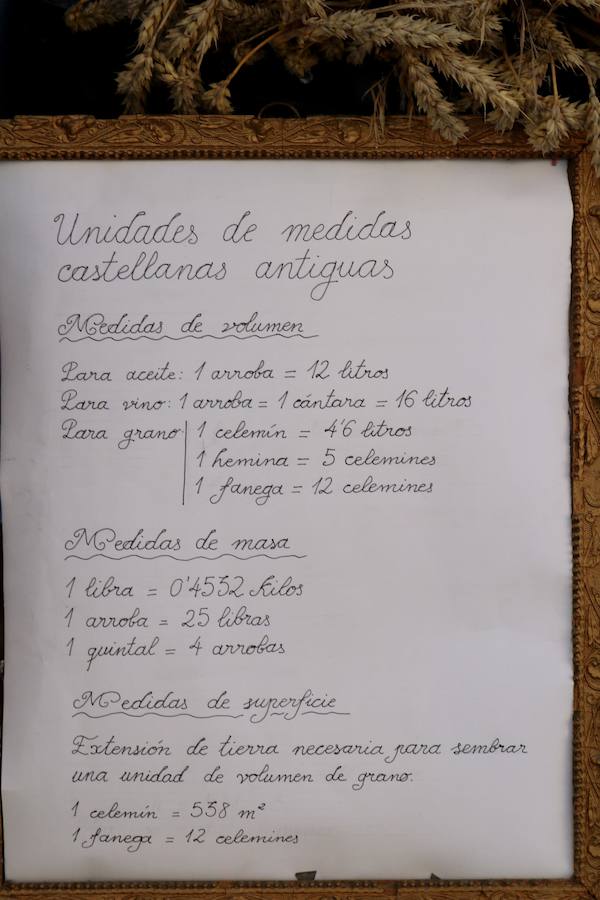 Unidades de medidas
castellanas antiguas
Medidas de volumen
Para aceite: 1 arroba = 12 litros
Para vino: 1 arroba = 1 cántara = 16 litros
Para grano 1 celemín = 4'6 litros
1 hemina = 5 celemines
1 fanega = 12 celemines
Medidas de masa
1 libra = 0'4532 Kilos
1 arroba = 25 libras
1 quintal = 4 arrobas
Medidas de superficie
Extensión de tierra necesaria para sembrar
una unidad de volumen de grano.
1 celemín = 538 m²
1 fanega = 12 celemines